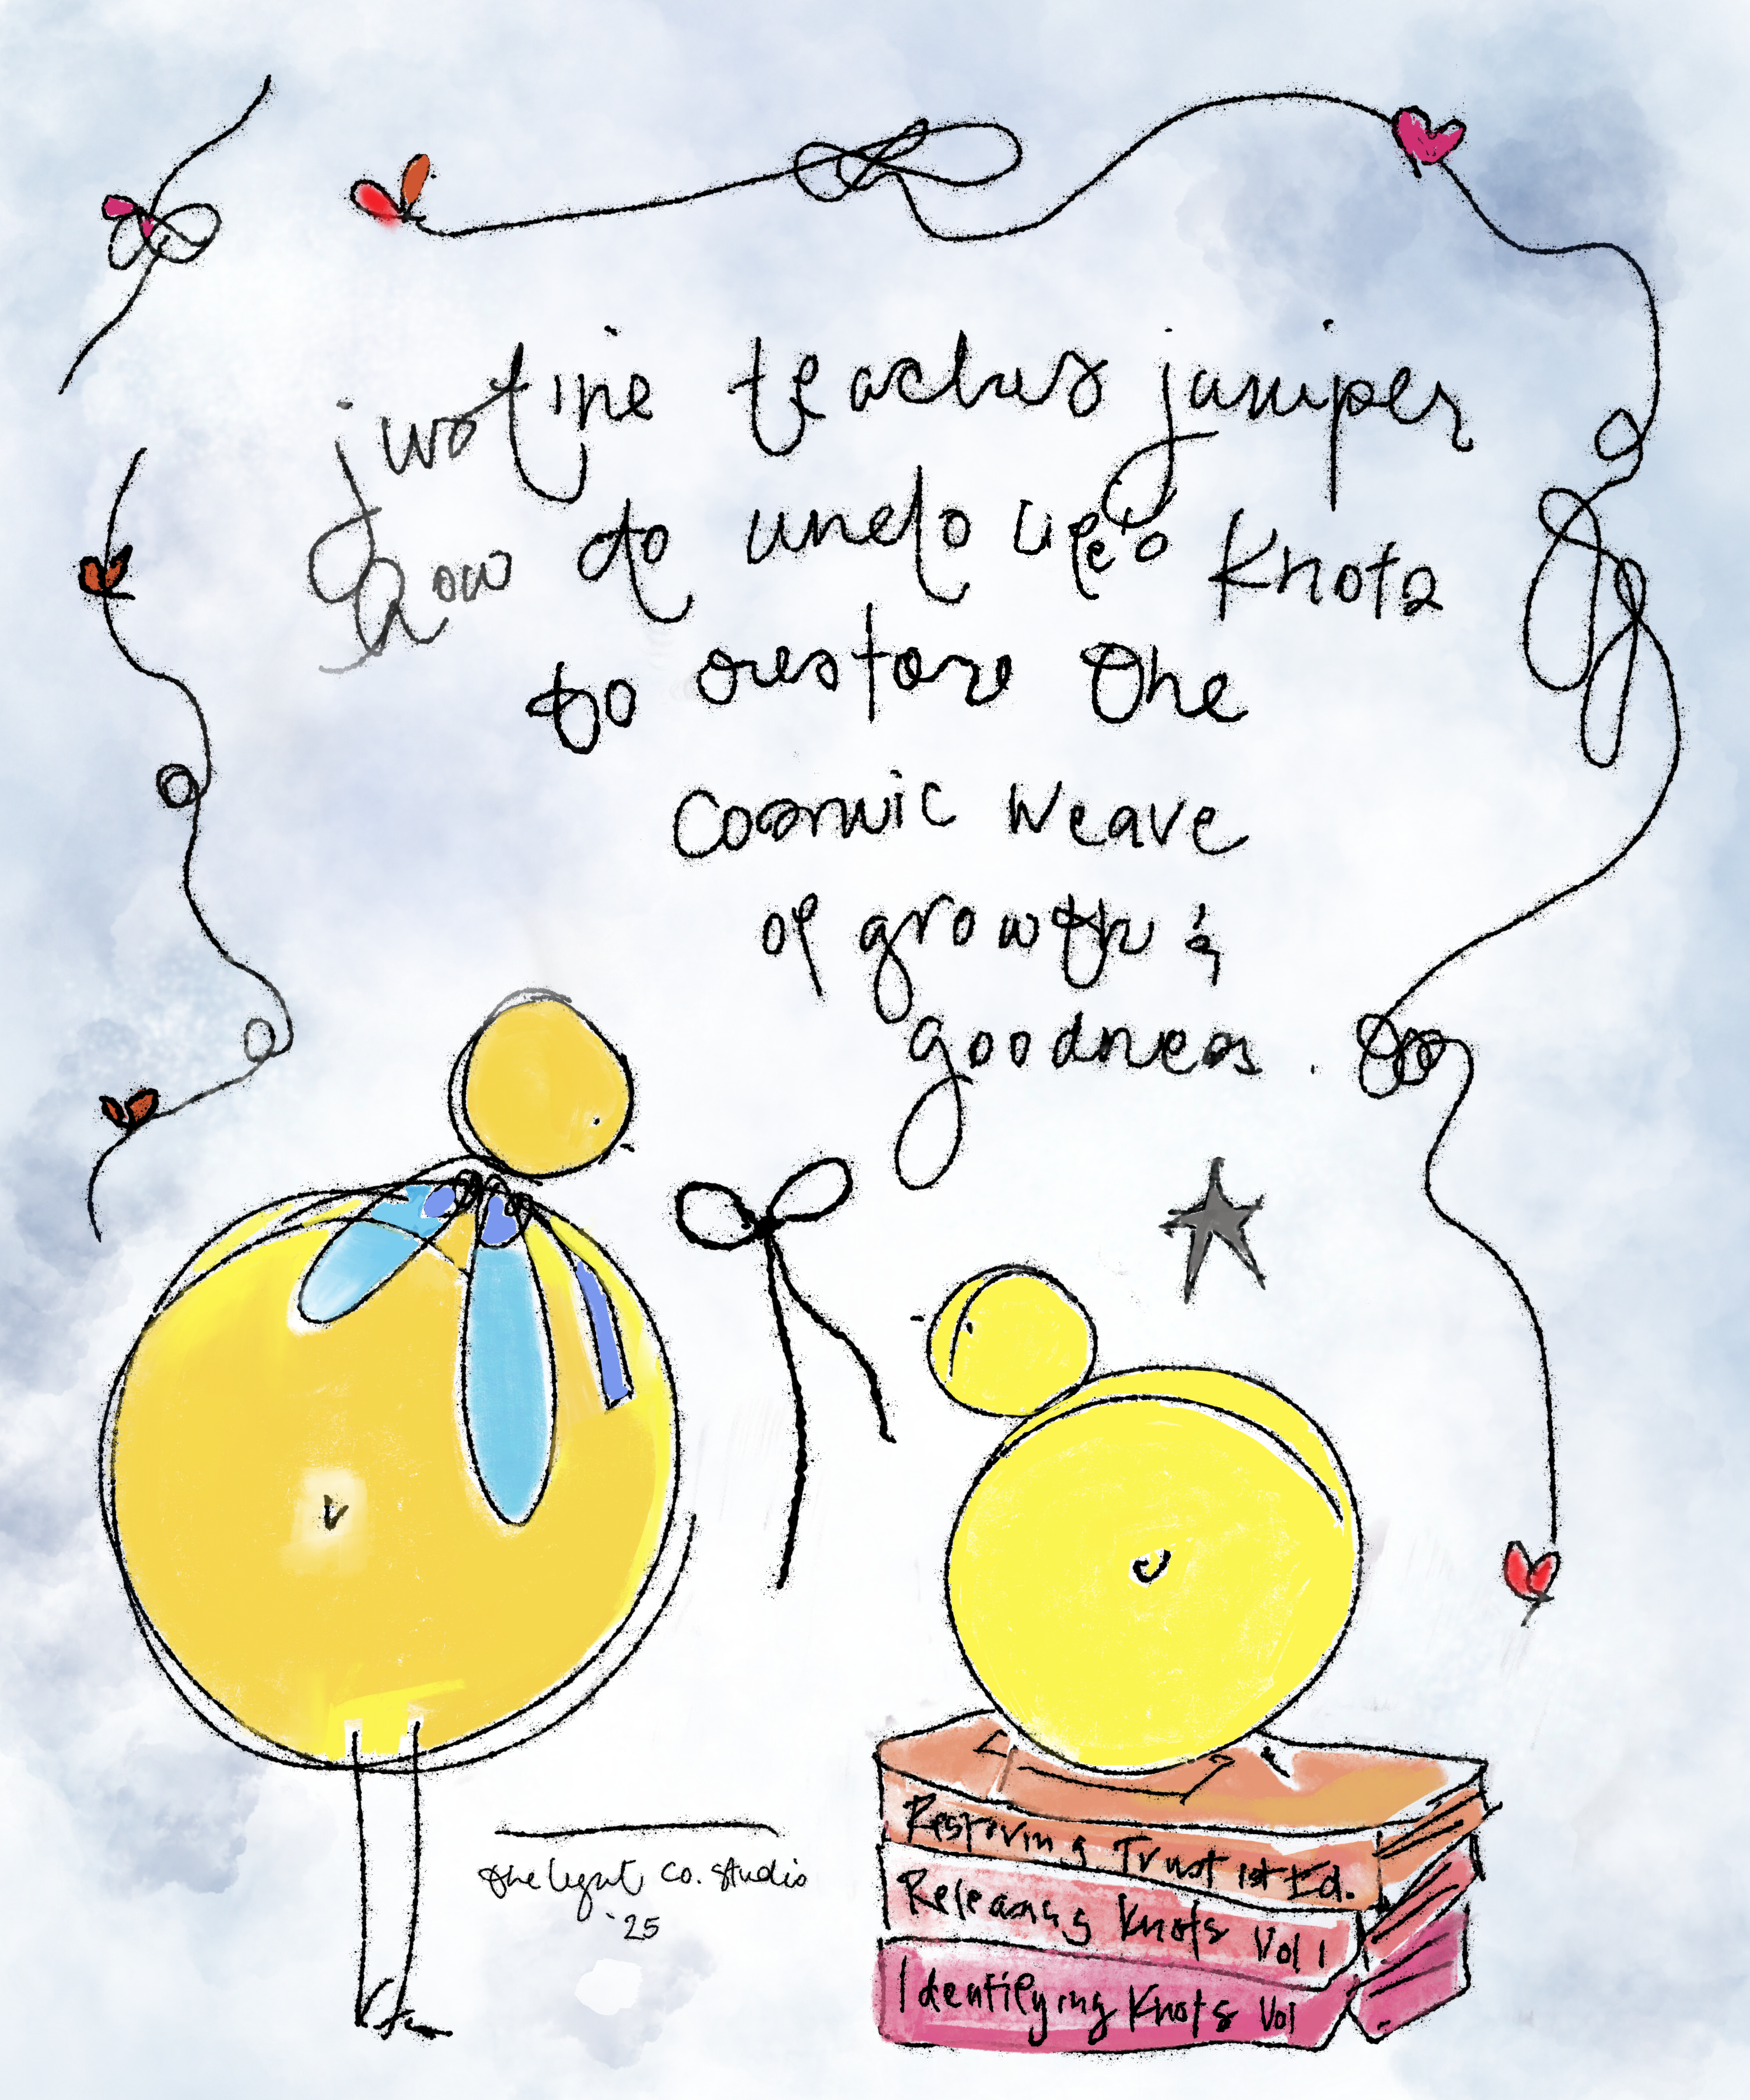 justine teaches juniper
how to undo life's knots
to restore the
cosmic weave
of growth &
goodness.
the light co. studio
'25
Restoring Trust 1st Ed.
Releasing Knots Vol 1
Identifying Knots Vol